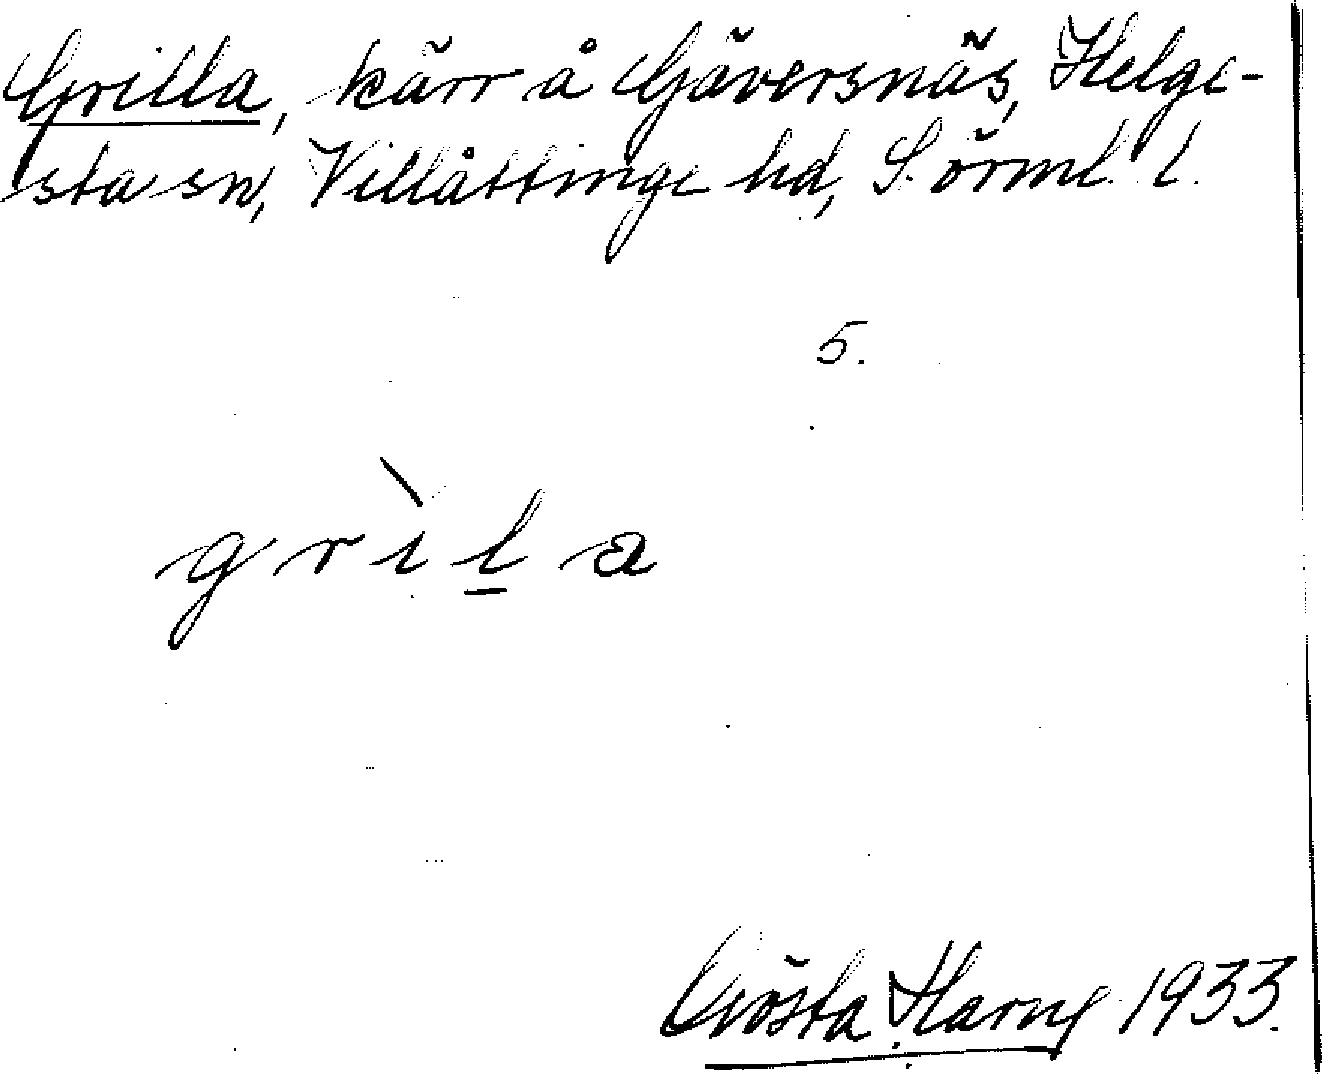 Grilla, kärr å Gäversnäs, Helge-
sta sn, Villåttinge hd, Sörml. l.
5.
grìl̠a
Gösta Harng 1933.